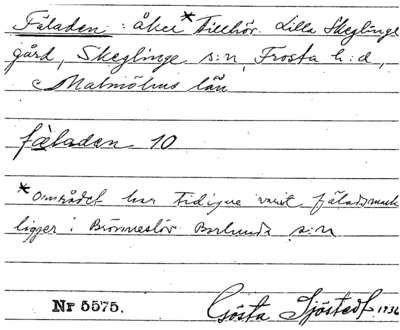 Fäladen : åker * Tillhör Lilla Skeglinge
gård, Skeglinge s:n, Frosta h:d,
Malmöhus län
fäladen 10
* Området har tidigare varit fäladsmark
ligger i Brönneslöv Borlunda s:n
Nr 5575. Gösta Sjöstedt 1936